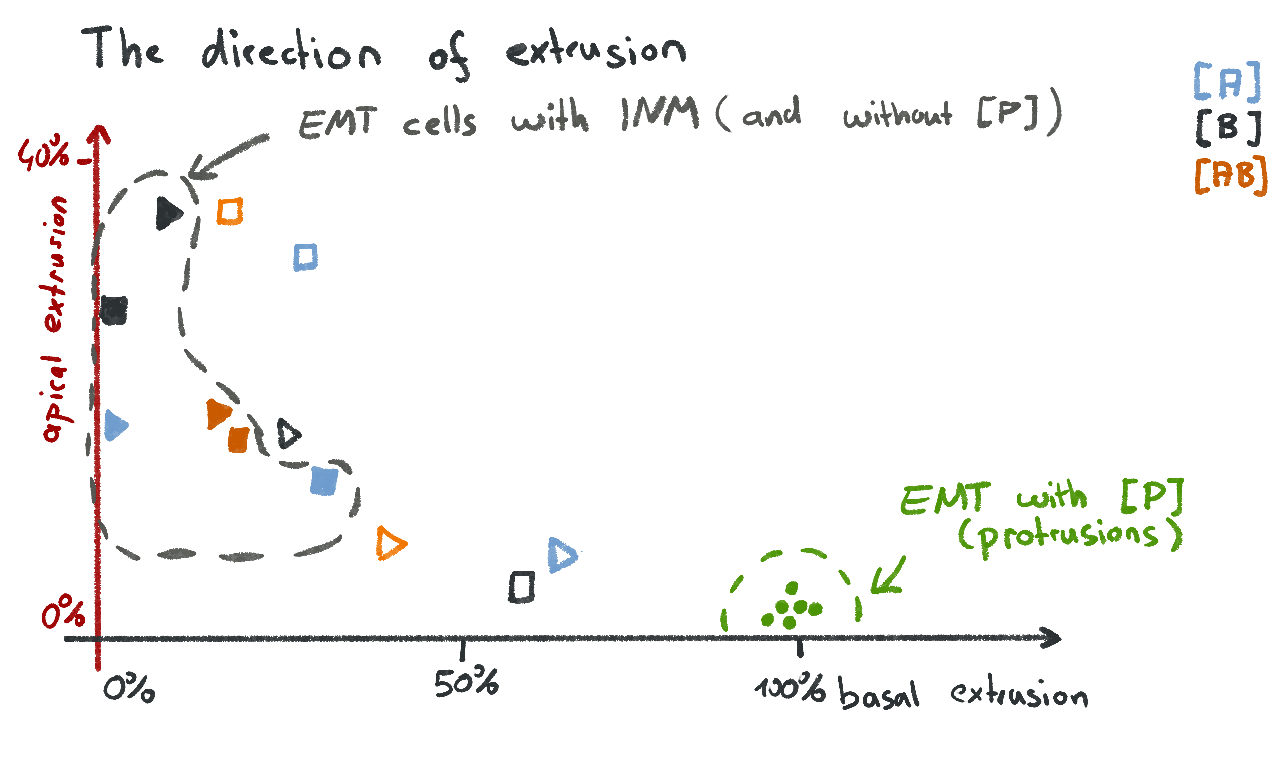 The direction of extrusion
EMT cells with INM (and without [P])
[A]
[B]
[AB]
40%
apical extrusion
EMT with [P]
(protrusions)
0%
0%
50%
100%
basal extrusion